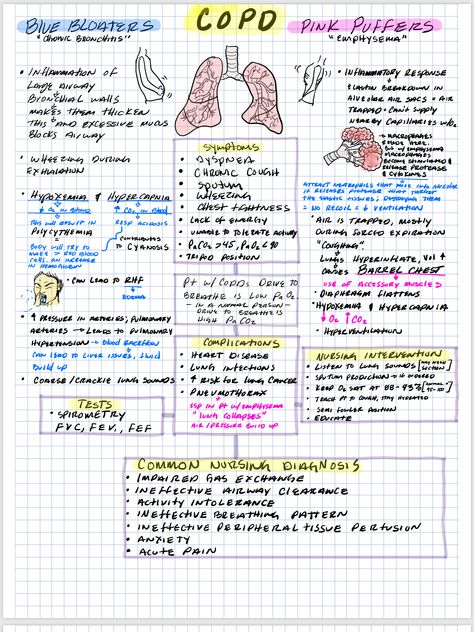 COPD
BLUE BLOATERS
"CHRONIC BRONCHITIS"
• INFLAMMATION OF
LARGE AIRWAY
BRONCHIAL WALLS
MAKES THEM THICKEN
THIS AND EXCESSIVE MUCUS
BLOCKS AIRWAY
• WHEEZING DURING
EXHALATION
• HYPOXEMIA & HYPERCAPNIA
↓ O₂ IN BLOOD
↑ CO₂ IN BLOOD
THIS WILL RESULT IN
RESP ACIDOSIS
POLYCYTHEMIA
=
CONTRIBUTES
TO CYANOSIS
BODY WILL TRY TO
MAKE > RED BLOOD
CELLS, AN INCREASE
IN HEMOGLOBIN
• CAN LEAD TO RHF
↓
EDEMA
• ↑ PRESSURE IN ARTERIES; PULMONARY
ARTERIES → LEADS TO PULMONARY
HYPERTENSION → blood backflow
CAN LEAD TO LIVER ISSUES, fluid
build up
• COARSE/CRACKLE LUNG SOUNDS
PINK PUFFERS
"EMPHYSEMA"
• INFLAMMATORY RESPONSE
& ELASTIN BREAKDOWN IN
ALVEOLAR AIR SACS → AIR
TRAPPED → CAN'T SUPPLY
NEARBY CAPILLARIES W/O₂
→ MACROPHAGES
RESIDE HERE.
BUT W/ EMPHYSEMA
MACROPHAGES
BECOME STIMULATED &
RELEASE PROTEASE &
CYTOKINES
ATTRACT NEUTROPHILS THAT
RELEASE PROTEASE THAT
THE ELASTIC TISSUES; DESTROYING THEM
= NO RECOIL = ↓ VENTILATION
• AIR IS TRAPPED, MOSTLY
DURING FORCED EXPIRATION
"COUGHING"
↳ LUNGS
HYPERINFLATE, VOL ↑
CAUSES BARREL CHEST
USE OF ACCESSORY MUSCLES
• DIAPHRAGM FLATTENS
• HYPOXEMIA & HYPERCAPNIA
↓ O₂ ↑ CO₂
• HYPERVENTILATION
SYMPTOMS
• DYSPNEA
• CHRONIC COUGH
• SPUTUM
• WHEEZING
• CHEST TIGHTNESS
• LACK OF ENERGY
• UNABLE TO TOLERATE ACTIVITY
• PaCO₂ >45, PaO₂ <90
• TRIPOD POSITION
PT W/ COPDS DRIVE TO
BREATHE IS LOW PaO₂.
IN A NORMAL PERSON—
DRIVE TO BREATHE IS
HIGH PaCO₂
COMPLICATIONS
• HEART DISEASE
• LUNG INFECTIONS
• ↑ RISK FOR LUNG CANCER
• PNEUMOTHORAX
ESP IN PT W/ EMPHYSEMA
"LUNG COLLAPSES"
AIR/PRESSURE BUILD UP
NURSING INTERVENTION
• LISTEN TO LUNG SOUNDS [MAY NEED SUCTION]
• SPUTUM PRODUCTION →
• KEEP O₂ SAT AT 88-93% [NORMAL 95-100]
• TEACH PT TO COUGH, STAY HYDRATED
• SEMI FOWLER POSITION
• EDUCATE
TESTS
• SPIROMETRY
FVC, FEV₁, FEF
COMMON NURSING DIAGNOSIS
• IMPAIRED GAS EXCHANGE
• INEFFECTIVE AIRWAY CLEARANCE
• ACTIVITY INTOLERANCE
• INEFFECTIVE BREATHING PATTERN
• INEFFECTIVE PERIPHERAL TISSUE PERFUSION
• ANXIETY
• ACUTE PAIN